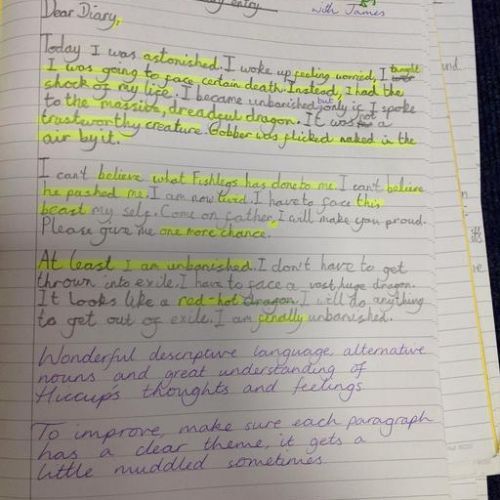 entry
with James
Dear Diary,
Today I was astonished. I woke up feeling worried, I thought
I was going to face certain death. Instead, I had the
shock of my life. I became unbanished but only if I spoke
to the massive, dreadful dragon. It was not a
trasteworthy creature. Gobber was flicked naked in the
air by it.
I can't believe what Fishlegs has done to me. I can't believe
he pashed me. I am now tired. I have to face this
beast my self. Come on father, I will make you proud.
Please give me one more chance.
At least I am unbanished. I don't have to get
thrown into exile. I have to face a vast, huge dragon.
It looks like a red-hot dragon. I will do anything
to get out of exile. I am finally unbanished.
Wonderful descriptive language, alternative
nouns and great understanding of
Hiccups thoughts and feelings
To improve, make sure each paragraph
has a clear theme, it gets a
little muddled sometimes